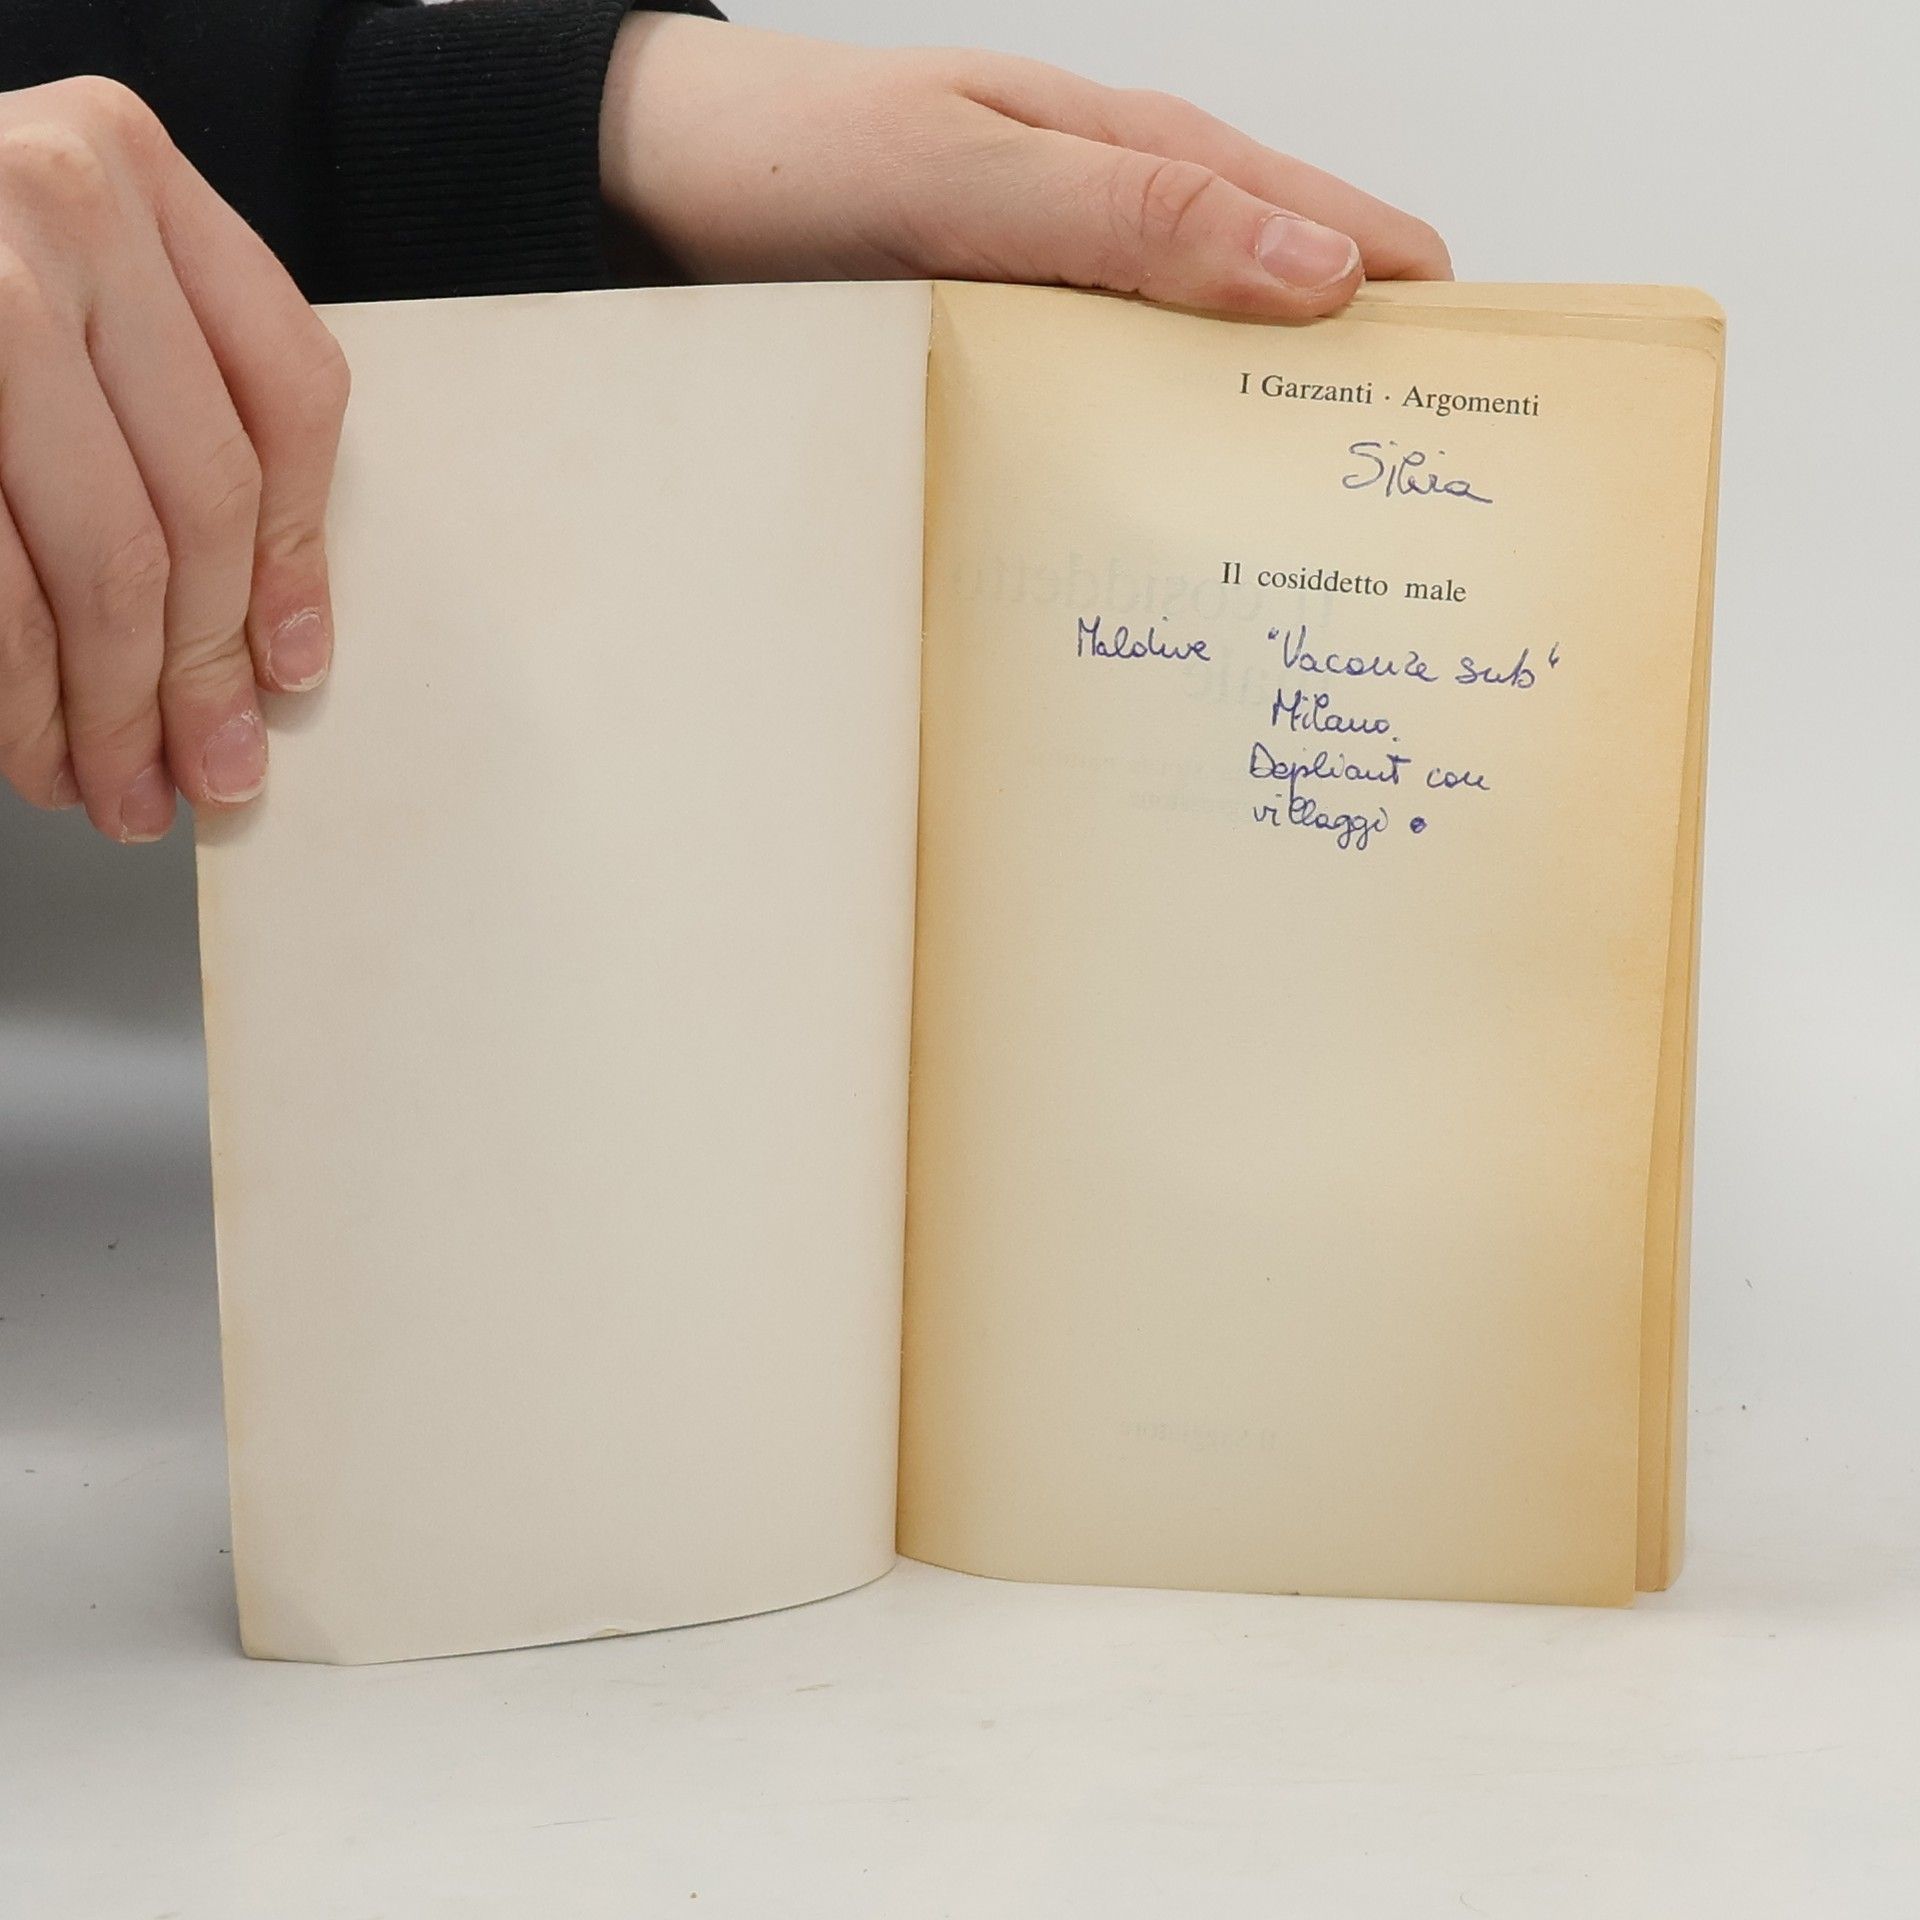 I Garzanti · Argomenti
Silvia
Il cosiddetto male
Maldive "Vacanze sub"
Milano.
Depliant con
villaggi •